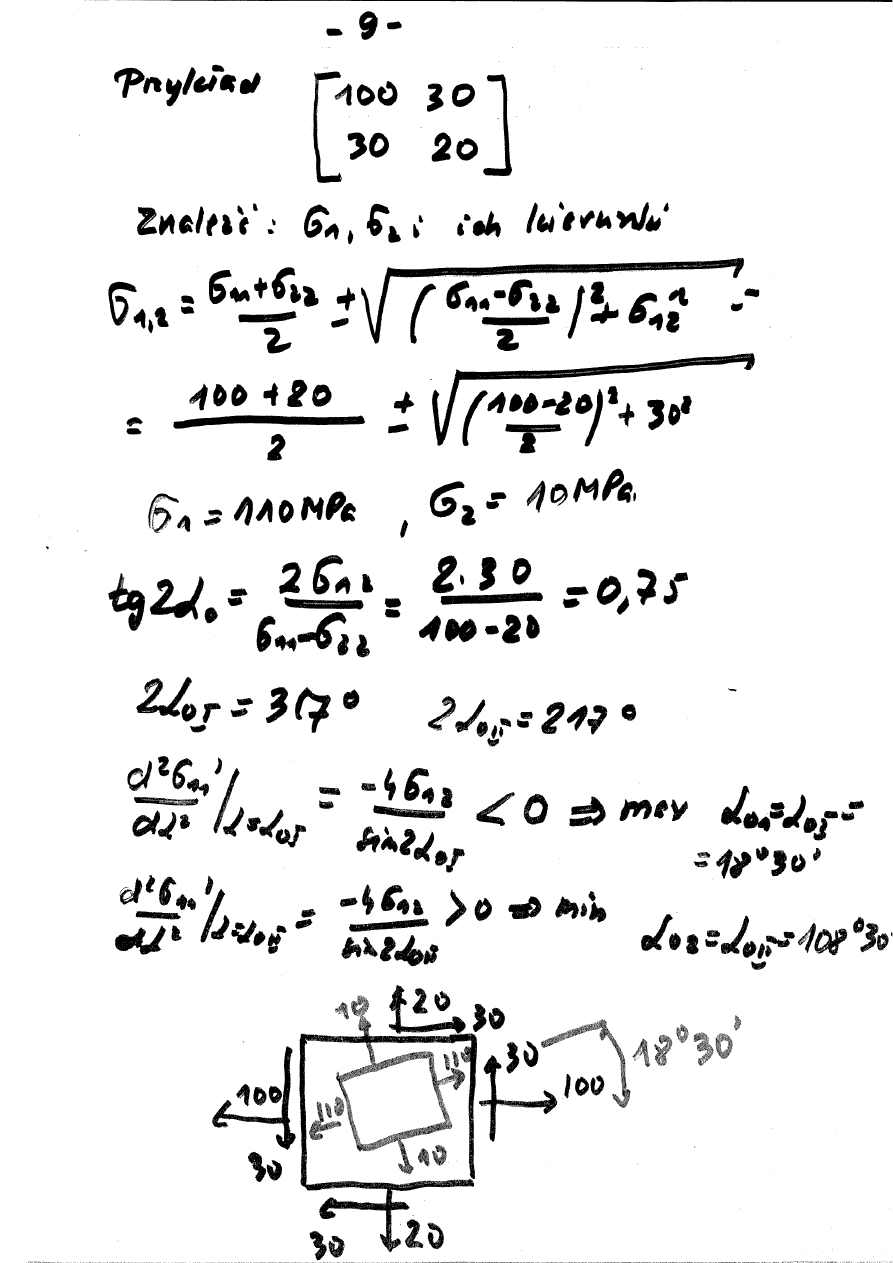 - 9 -
Przykład [100 30
30 20]
Znaleźć: σ₁, σ₂ i ich kierunki
σ₁,₂ = (σ₁₁+σ₂₂)/2 ± √((σ₁₁-σ₂₂)/2)² + σ₁₂² =
= (100+20)/2 ± √((100-20)/2)² + 30²
σ₁ = 110MPa , σ₂ = 10MPa.
tg2α₀ = 2σ₁₂/(σ₁₁-σ₂₂) = 2·30/(100-20) = 0,75
2α₀I = 37° 2α₀II = 217°
d²σ₁₁'/dα² /α=α₀I = -4σ₁₂/sin2α₀I < 0 ⇒ max α₀₁=α₀I=
=18°30'
d²σ₁₁'/dα² /α=α₀II = -4σ₁₂/sin2α₀II > 0 ⇒ min α₀₂=α₀II=108°30'
10 20 30
110 30 18°30'
100 110 100
30 10
30 20